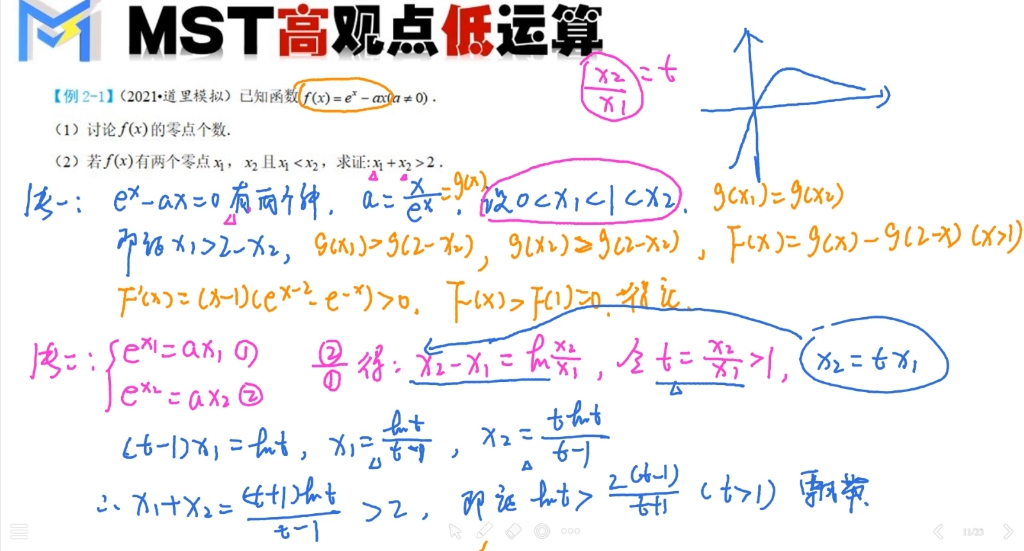 MST高观点低运算
【例2-1】(2021•道里模拟) 已知函数 f(x)=eˣ-ax(a≠0).
x₂/x₁=t
(1) 讨论 f(x) 的零点个数.
(2) 若 f(x) 有两个零点 x₁, x₂ 且 x₁<x₂, 求证: x₁+x₂>2.
法一: eˣ-ax=0 有两个解. a=x/eˣ=g(x). 设0<x₁<1<x₂. g(x₁)=g(x₂)
即证 x₁>2-x₂, g(x₁)>g(2-x₂), g(x₂)>g(2-x₂), F(x)=g(x)-g(2-x) (x>1)
F'(x)=(x-1)(eˣ⁻²-e⁻ˣ)>0. F(x)>F(1)=0. 得证.
法二: {eˣ¹=ax₁ ① ②/① 得: x₂-x₁=ln x₂/x₁, 令 t=x₂/x₁>1, x₂=tx₁
eˣ²=ax₂ ②
(t-1)x₁=lnt, x₁=lnt/(t-1), x₂=tlnt/(t-1)
∴ x₁+x₂=(t+1)lnt/(t-1)>2, 即证 lnt>2(t-1)/(t+1) (t>1) 飘带
11/23